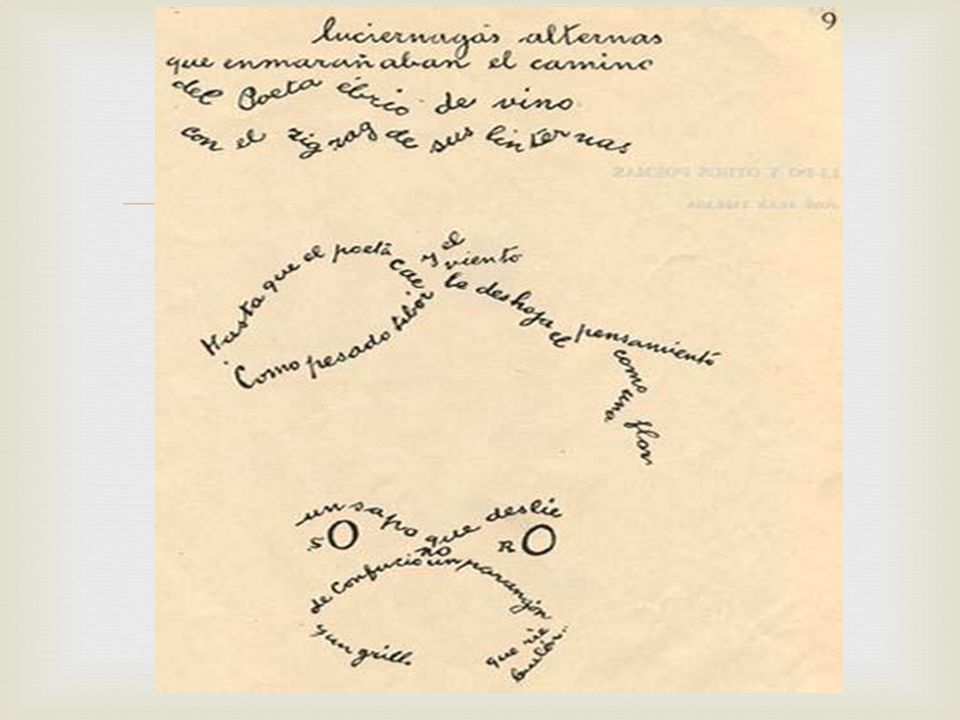 9
luciernagas alternas
que enmarañaban el camino
del Poeta ébrio de vino
con el zigzag de sus linternas
LI-PO Y OTROS POEMAS
JOSÉ JUAN TABLADA
Hasta que el poeta cae
Como pesado tibor
y el viento
le deshoja el pensamiento
como una flor
un sapo que deslie
SO
no
RO
de Confucio un parangón
y un grillo
que rie
burlón..